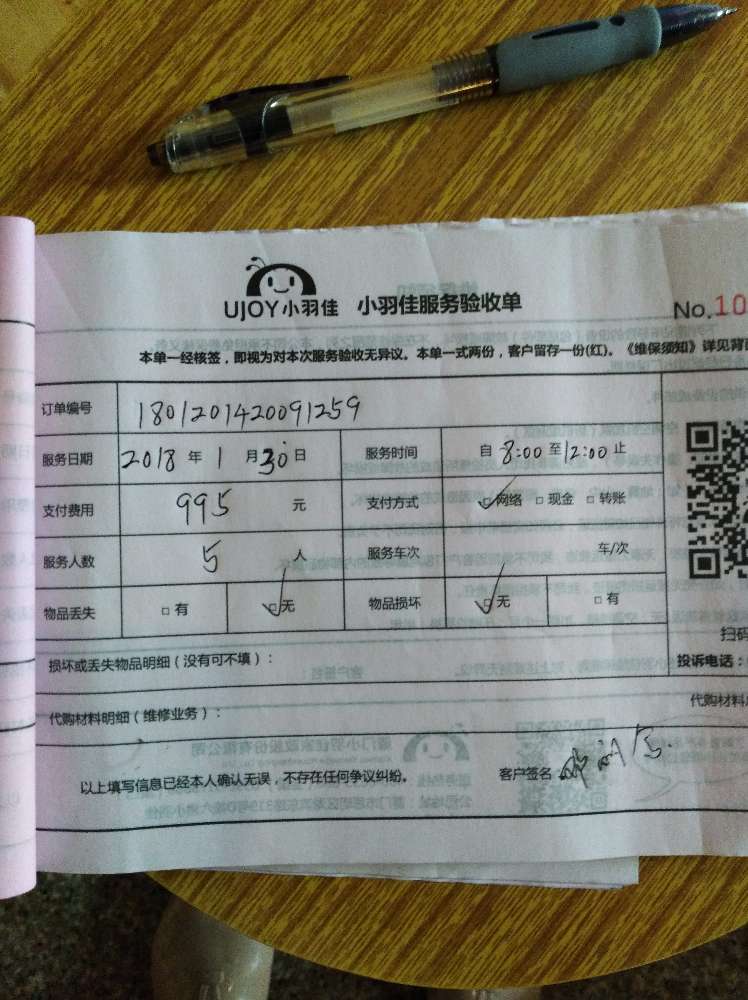 UJOY小羽佳 小羽佳服务验收单
No.10
本单一经核签，即视为对本次服务验收无异议。本单一式两份，客户留存一份(红)。《维保须知》详见背
订单编号 1801201420091259
服务日期 2018 年 1 月 30 日 服务时间 自 8:00 至 12:00 止
支付费用 995 元 支付方式 ☑网络 □现金 □转账
服务人数 5 人 服务车次 车/次
物品丢失 □有 ☑无 物品损坏 ☑无 □有
扫码
损坏或丢失物品明细（没有可不填）：
投诉电话：
代购材料明细（维修业务）：
代购材料
以上填写信息已经本人确认无误，不存在任何争议纠纷。 客户签名